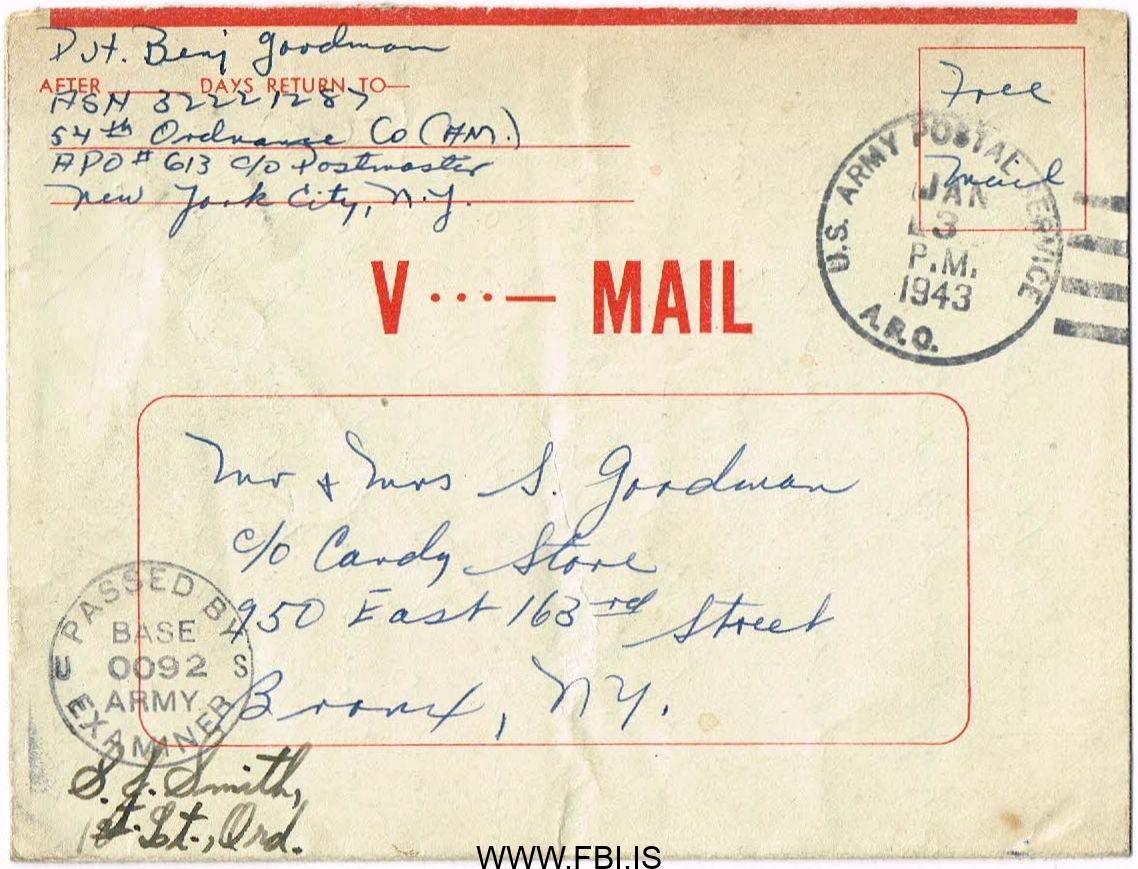 Pvt. Benj Goodman
AFTER ____ DAYS RETURN TO—
ASN 32221287
54th Ordnance Co (HM.)
APO # 613 c/o Postmaster
New York City, N.Y.
Free
Mail
U.S. ARMY POSTAL SERVICE
JAN
13
P.M.
1943
A.P.O.
V ...— MAIL
Mr & Mrs S. Goodman
c/o Candy Store
950 East 163rd Street
Bronx, NY.
PASSED BY
BASE
U 0092 S
ARMY
EXAMINER
S. J. Smith,
1st. Lt., Ord.
WWW.FBI.IS